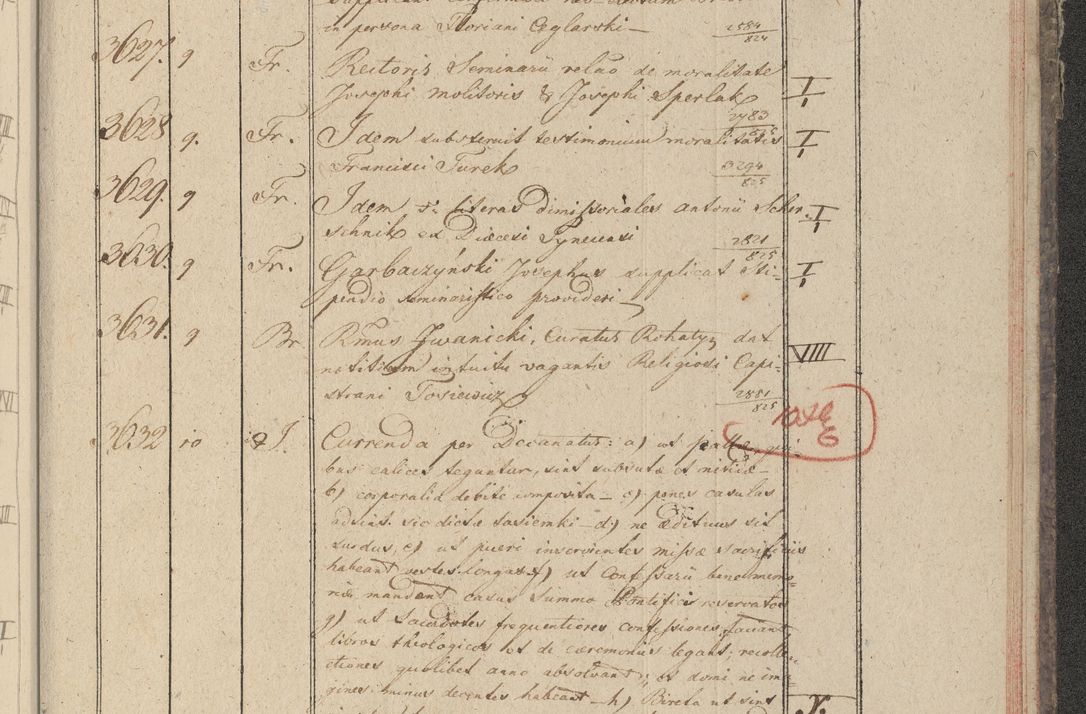 in persona Floriani Ceglarski —
2584/824
3627. 9 Fr. Rectoris Seminarii relao de moralitate
Josephi Molitoris & Josephi Sperlak I
2783/825
3628 9. Fr. Idem substernit testimonium moralitatis I
Francisci Turek 3294/825
3629. 9 Fr. Idem literas dimissoriales Antonii Scher- I
schnik ex Diœcesi Tynecensi 2821/825
3630. 9 Fr. Garbaczyński Josephus supplicat Sti- I
pendio seminaristico provideri —
3631. 9 Br. Rmus Iwanicki, Curatus Rohatyn dat VIII
notitiam intuitu vagantis Religiosi Capi-
strani Tosiewicz 2851/825
3632 10 J. Currenda per Decanatus: a) ut pallæ qui-
bus calices teguntur, sint subsutæ et nitidæ —
b) corporalia debite composita — c) penes casulas
adsint sic dictæ tasiemki — d) ne Ædituus sit
surdus, e) ut pueri inservientes missæ sacrificiis
habeant vestes longas f) ut Confessarii bene memo-
riæ mandent casus Summo Pontifici reservatos
g) ut Sacerdotes frequentiores confessiones faciant,
libros theologicos et de cæremoniis legant; recolle-
ctiones quolibet anno absolvant; et domi ne ima-
gines minus decentes habeant — h) Bireta ut sint V.